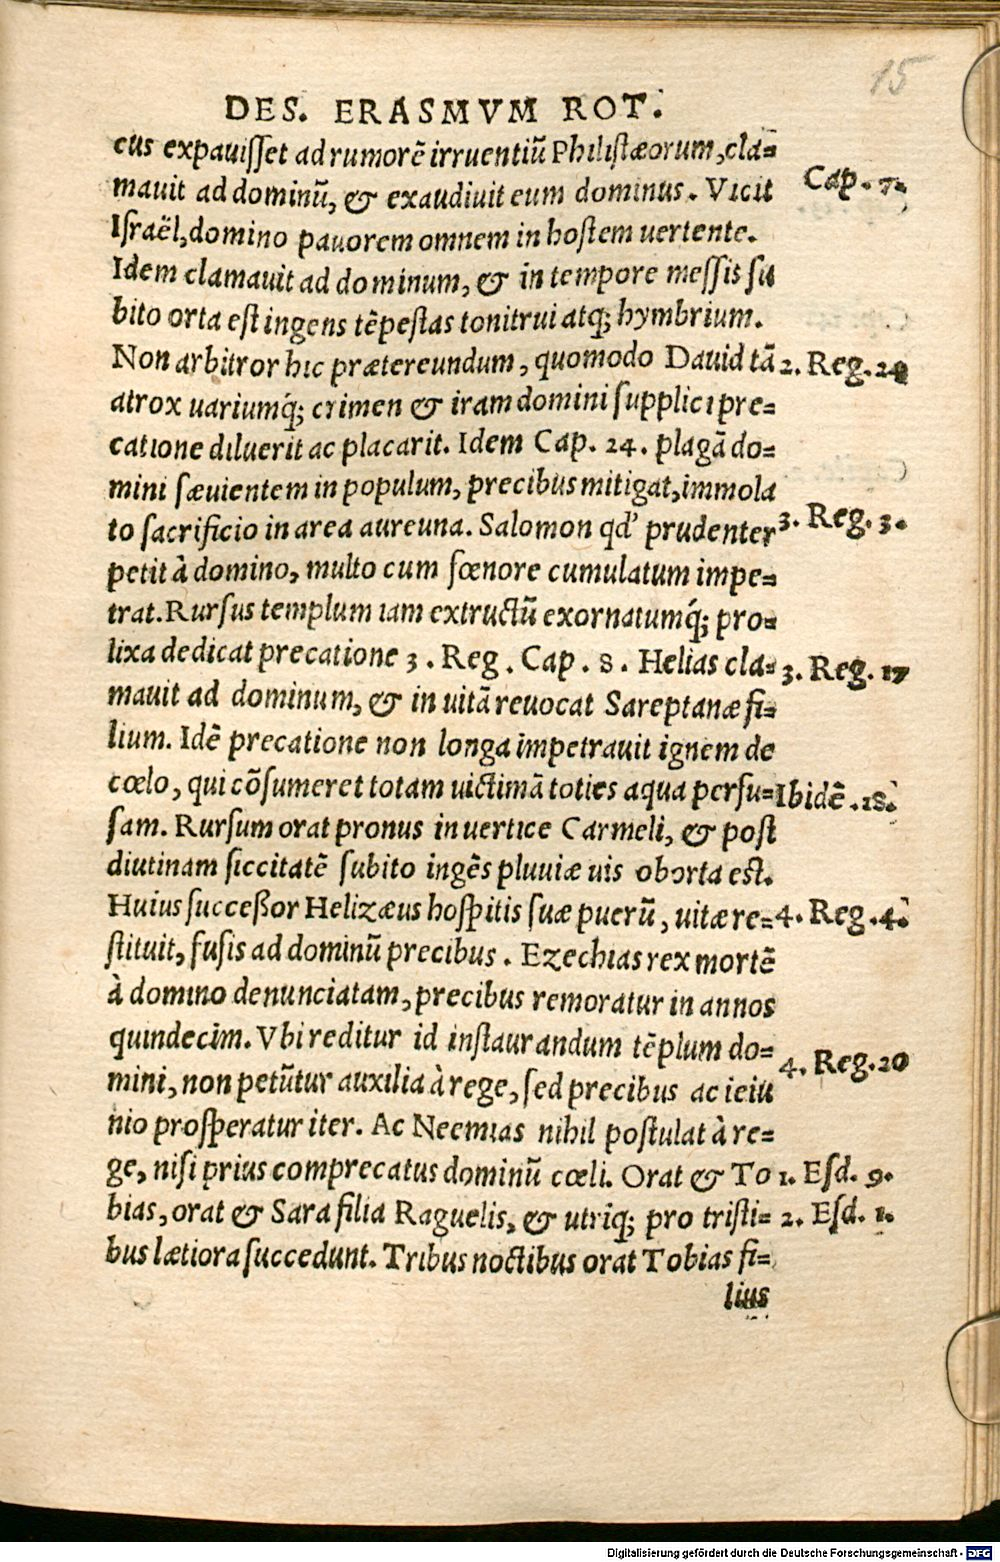 15
DES. ERASMVM ROT.
cus expauisset ad rumorē irruentiū Philistæorum, cla=
mauit ad dominū, & exaudiuit eum dominus. Vicit
Cap. 7.
Israël, domino pauorem omnem in hostem uertente.
Idem clamauit ad dominum, & in tempore messis su
bito orta est ingens tēpestas tonitrui atq; hymbrium.
Non arbitror hic prætereundum, quomodo Dauid tā
2. Reg. 24
atrox uariumq́; crimen & iram domini supplici pre=
catione diluerit ac placarit. Idem Cap. 24. plagā do=
mini sæuientem in populum, precibus mitigat, immola
to sacrificio in area aureuna. Salomon qd’ prudenter
3. Reg. 3.
petit à domino, multo cum fœnore cumulatum impe=
trat. Rursus templum iam extructū exornatumq́; pro=
lixa dedicat precatione 3. Reg. Cap. 8. Helias cla=
3. Reg. 17
mauit ad dominum, & in uitā reuocat Sareptanæ fi=
lium. Idē precatione non longa impetrauit ignem de
cœlo, qui cōsumeret totam uictimā toties aqua perfu=
Ibidē. 18.
sam. Rursum orat pronus in uertice Carmeli, & post
diutinam siccitatē subito ingēs pluuiæ uis oborta est.
Huius successor Helizæus hospitis suæ puerū, uitæ re=
4. Reg. 4.
stituit, fusis ad dominū precibus. Ezechias rex mortē
à domino denunciatam, precibus remoratur in annos
quindecim. Vbi reditur id instaurandum tēplum do=
4. Reg. 20
mini, non petūtur auxilia à rege, sed precibus ac ieiu
nio prosperatur iter. Ac Neemias nihil postulat à re=
ge, nisi prius comprecatus dominū cœli. Orat & To
1. Esd. 9.
bias, orat & Sara filia Raguelis, & utriq; pro tristi=
2. Esd. 1.
bus lætiora succedunt. Tribus noctibus orat Tobias fi=
lius
Digitalisierung gefördert durch die Deutsche Forschungsgemeinschaft - DFG